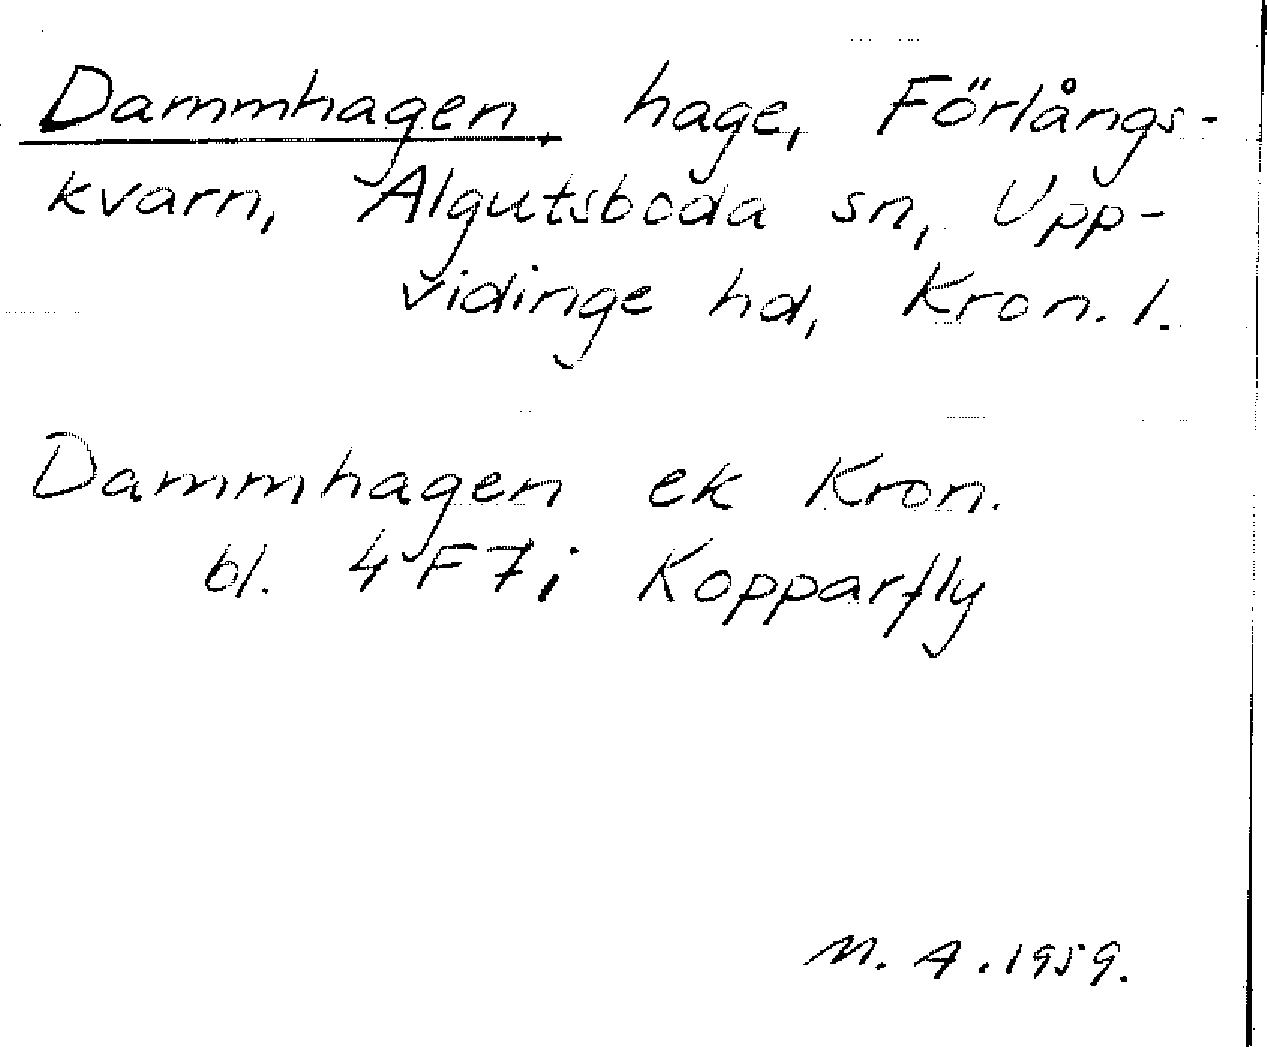 Dammhagen, hage, Förlångs-
kvarn, Algutsboda sn, Upp-
vidinge hd, Kron. l.
Dammhagen ek Kron.
bl. 4F7i Kopparfly
M. A. 1959.